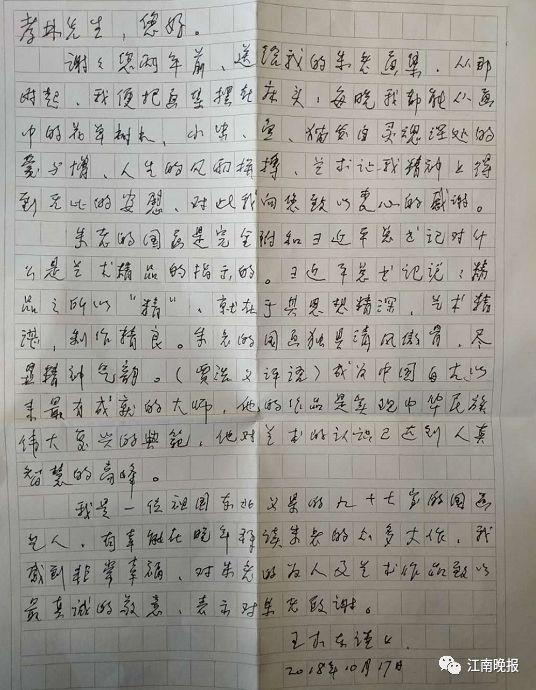 孝林先生，您好。
谢谢您两年前，送给我的朱老画集，从那
时起，我便把画集摆在床头，每晚我都能从画
中的花草树木，小虫、鱼、猫发自灵魂深处的
爱与憎，人生的风雨搏，艺术让我精神上得
到无比的安慰，对此我向您致以衷心的感谢。
朱老的国画是完全附和习近平总书记对什
么是艺术精品的指示的。习近平总书记说：精
品之所以“精”，就在于其思想精深，艺术精
湛，制作精良。朱老的国画独具清风傲骨，尽
显精神气韵。（贾浩义评语）成为中国自古以
来最有成就的大师，他的作品是实现中华民族
伟大复兴的典范，他对艺术的认识已达到人真
智慧的高峰。
我是一位祖国东北的九十七岁的国画
艺人，有幸能在晚年拜读朱老的众多大作，我
感到非常幸福，对朱老的为人及艺术作品致以
最真诚的敬意，表示对朱老致谢。
2018年10月17日
江南晚报